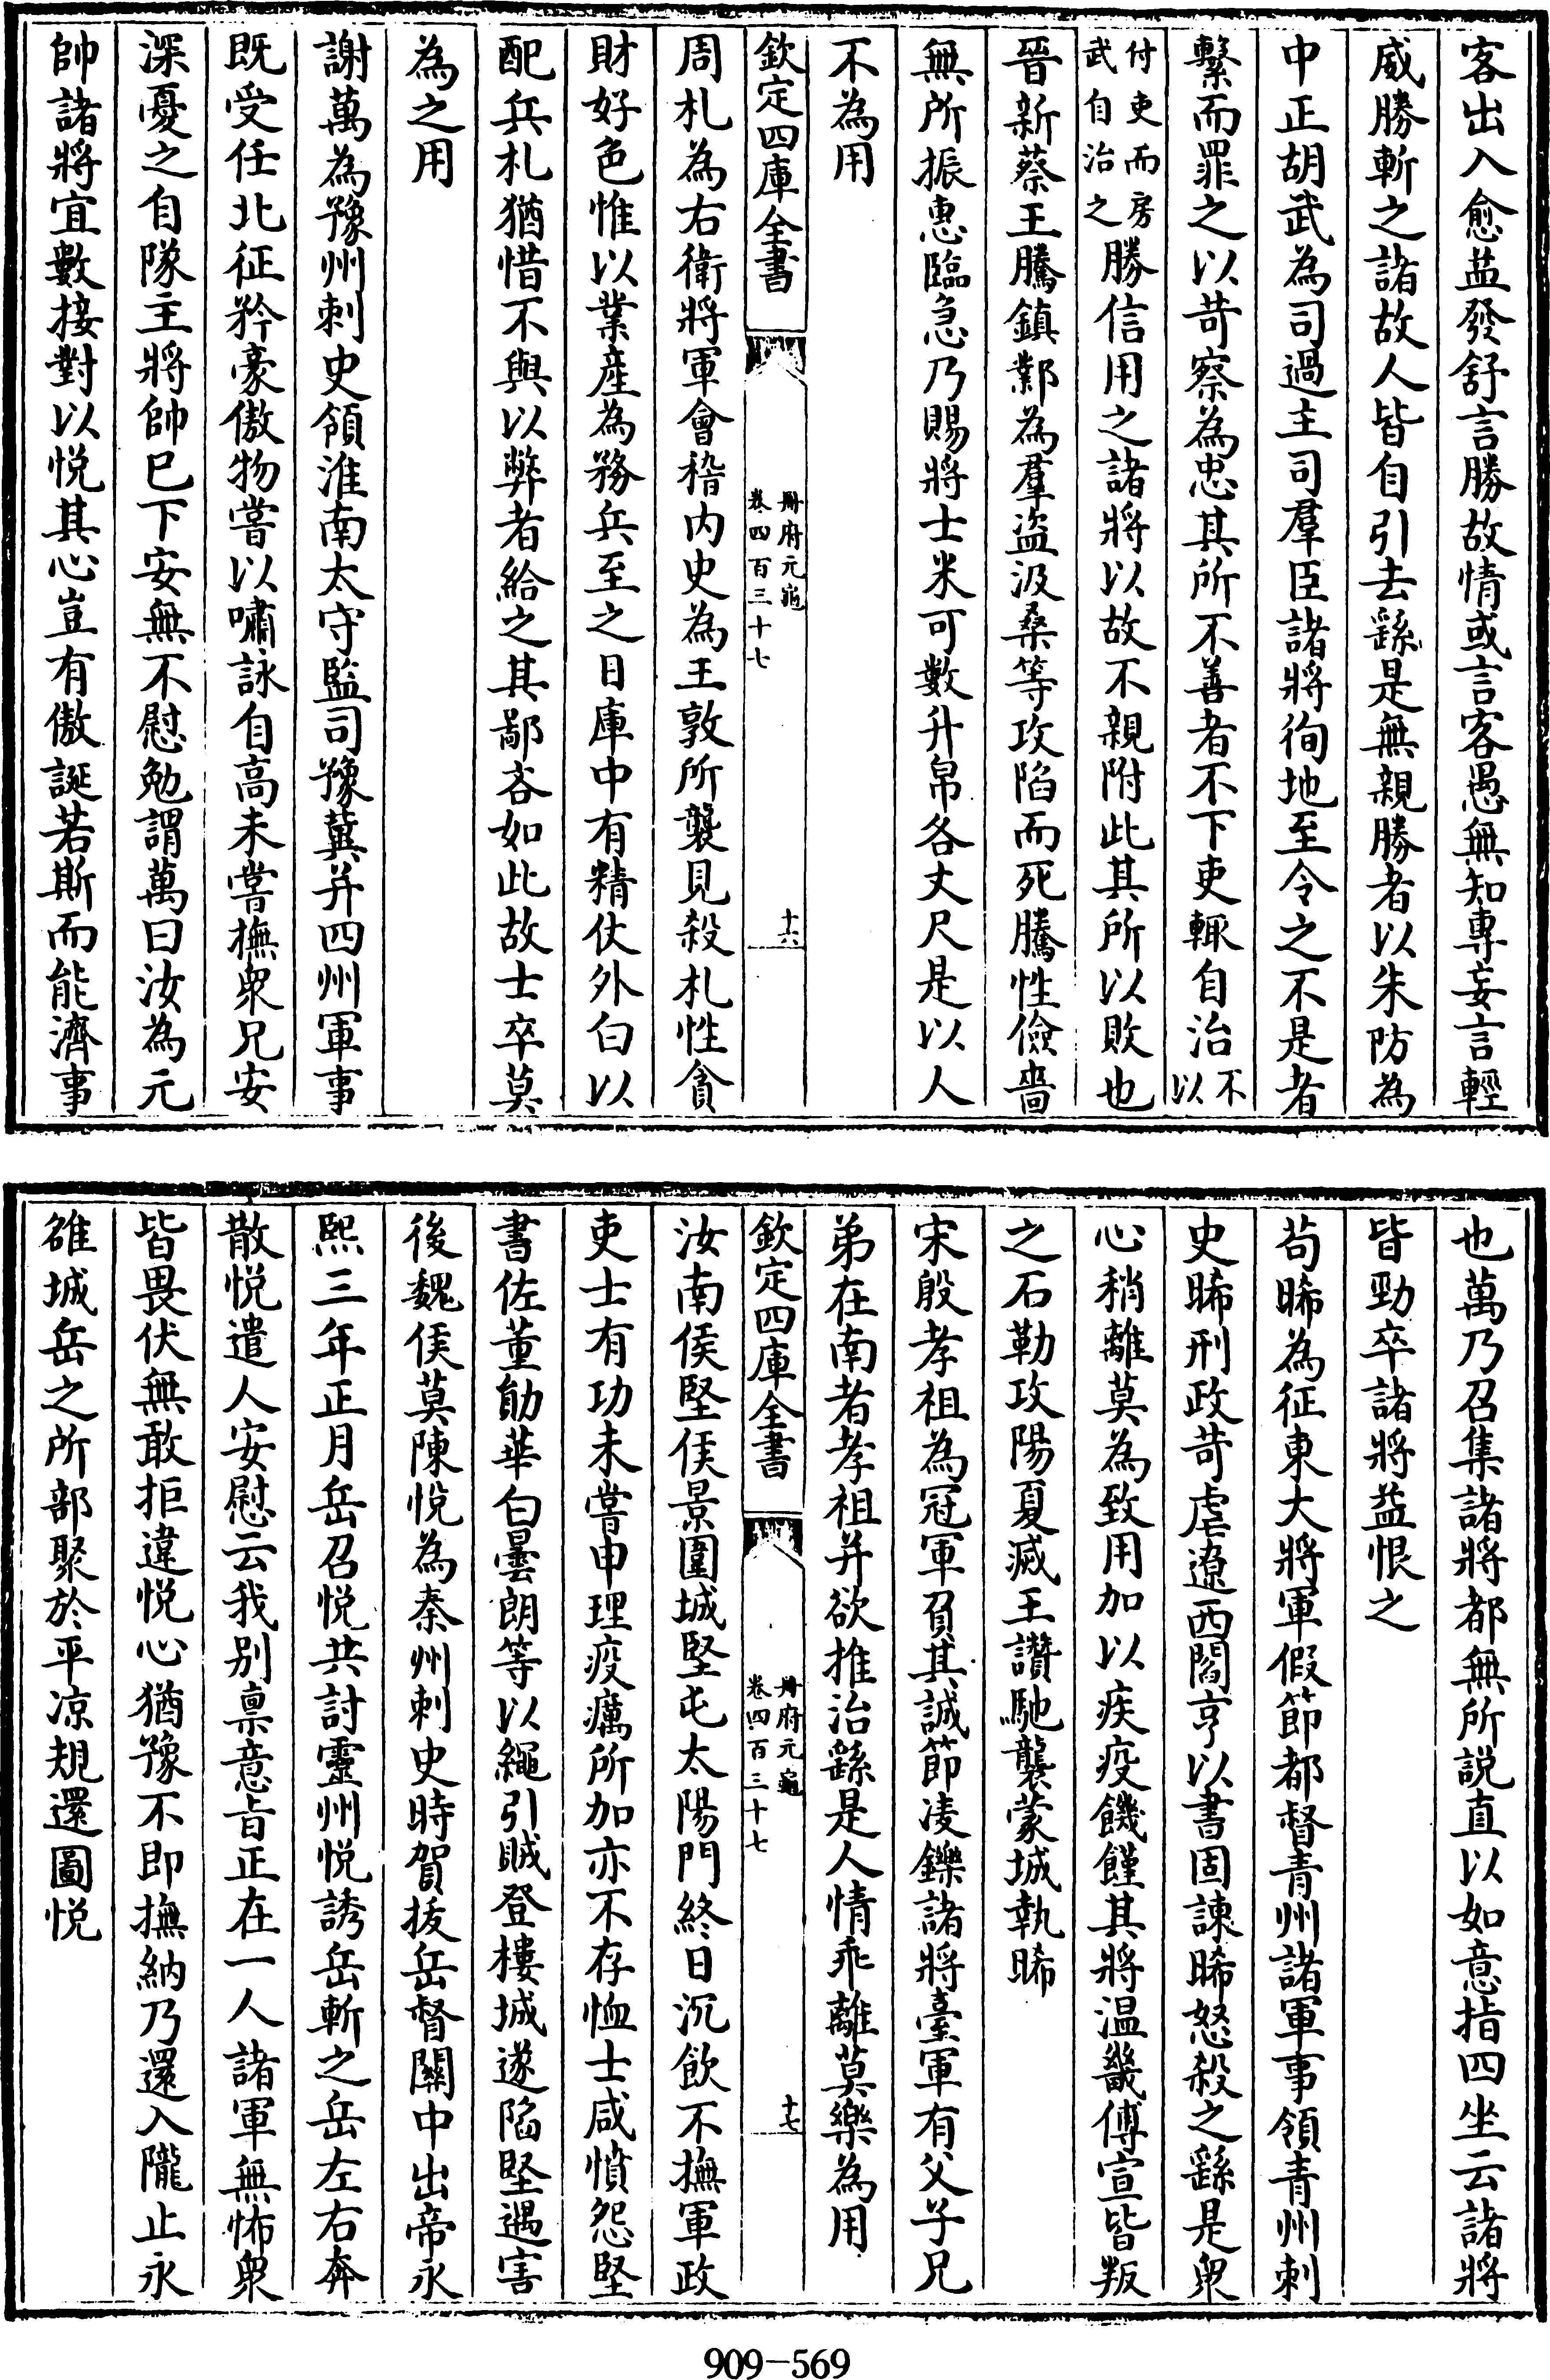 客出入愈益發舒言勝故情或言客愚無知專妄言輕
威勝斬之諸故人皆自引去繇是無親勝者以朱防為
中正胡武為司過主司羣臣諸將徇地至令之不是者
繫而罪之以苛察為忠其所不善者不下吏輒自治不以
付吏而房武自治之勝信用之諸將以故不親附此其所以敗也
晉新蔡王騰鎮鄴為羣盜汲桑等攻陷而死騰性儉嗇
無所振惠臨急乃賜將士米可數升帛各丈尺是以人
不為用
欽定四庫全書
冊府元龜
卷四百三十七
十六
周札為右衛將軍會稽内史為王敦所襲見殺札性貪
財好色惟以業産為務兵至之日庫中有精仗外白以
配兵札猶惜不與以弊者給之其鄙吝如此故士卒莫
為之用
謝萬為豫州刺史領淮南太守監司豫冀并四州軍事
既受任北征矜豪傲物嘗以嘯詠自高未嘗撫衆兄安
深憂之自隊主將帥已下安無不慰勉謂萬曰汝為元
帥諸將宜數接對以悅其心豈有傲誕若斯而能濟事
也萬乃召集諸將都無所説直以如意指四坐云諸將
皆勁卒諸將益恨之
苟晞為征東大將軍假節都督青州諸軍事領青州刺
史晞刑政苛虐遼西閻亨以書固諫晞怒殺之繇是衆
心稍離莫為致用加以疾疫饑饉其將温畿傅宣皆叛
之石勒攻陽夏滅王讚馳襲蒙城執晞
宋殷孝祖為冠軍負其誠節凌鑠諸將臺軍有父子兄
弟在南者孝祖并欲推治繇是人情乖離莫樂為用
欽定四庫全書
冊府元龜
卷四百三十七
十七
汝南侯堅侯景圍城堅屯太陽門終日沉飲不撫軍政
吏士有功未嘗申理疫癘所加亦不存恤士咸憤怨堅
書佐董勛華白曇朗等以繩引賊登樓城遂陷堅遇害
後魏侯莫陳悅為秦州刺史時賀拔岳督關中出帝永
熙三年正月岳召悅共討靈州悅誘岳斬之岳左右奔
散悅遣人安慰云我别禀意旨正在一人諸軍無怖衆
皆畏伏無敢拒違悅心猶豫不即撫納乃還入隴止永
雒城岳之所部聚於平凉規還圖悅
909-569